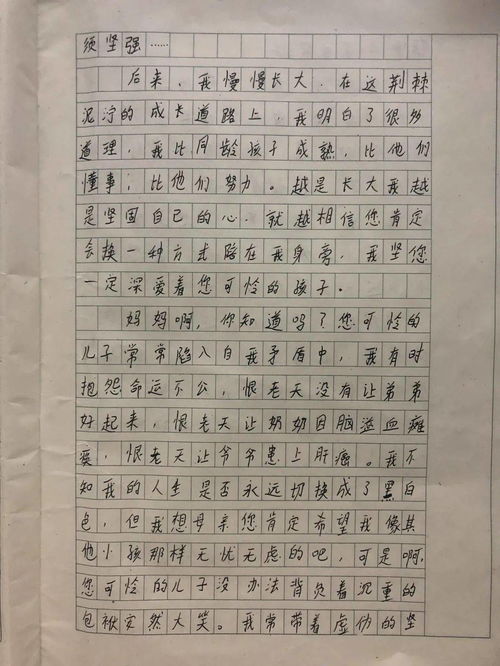 须坚强……
后来，我慢慢长大，在这荆棘
泥泞的成长道路上，我明白了很多
道理，我比同龄孩子成熟，比他们
懂事，比他们努力。越是长大我越
是坚固自己的心，就越相信您肯定
会换一种方式陪在我身旁，我坚您
一定深爱着您可怜的孩子。
妈妈啊，你知道吗？您可怜的
儿子常常陷入自我矛盾中，我有时
抱怨命运不公，恨老天没有让弟弟
好起来，恨老天让奶奶因脑溢血瘫
痪，恨老天让爷爷患上肝癌。我不
知我的人生是否永远切换成了黑白
色，但我想母亲您肯定希望我像其
他小孩那样无忧无虑的吧，可是啊，
您可怜的儿子没办法背负着沉重的
包袱突然大笑。我常带着虚伪的坚